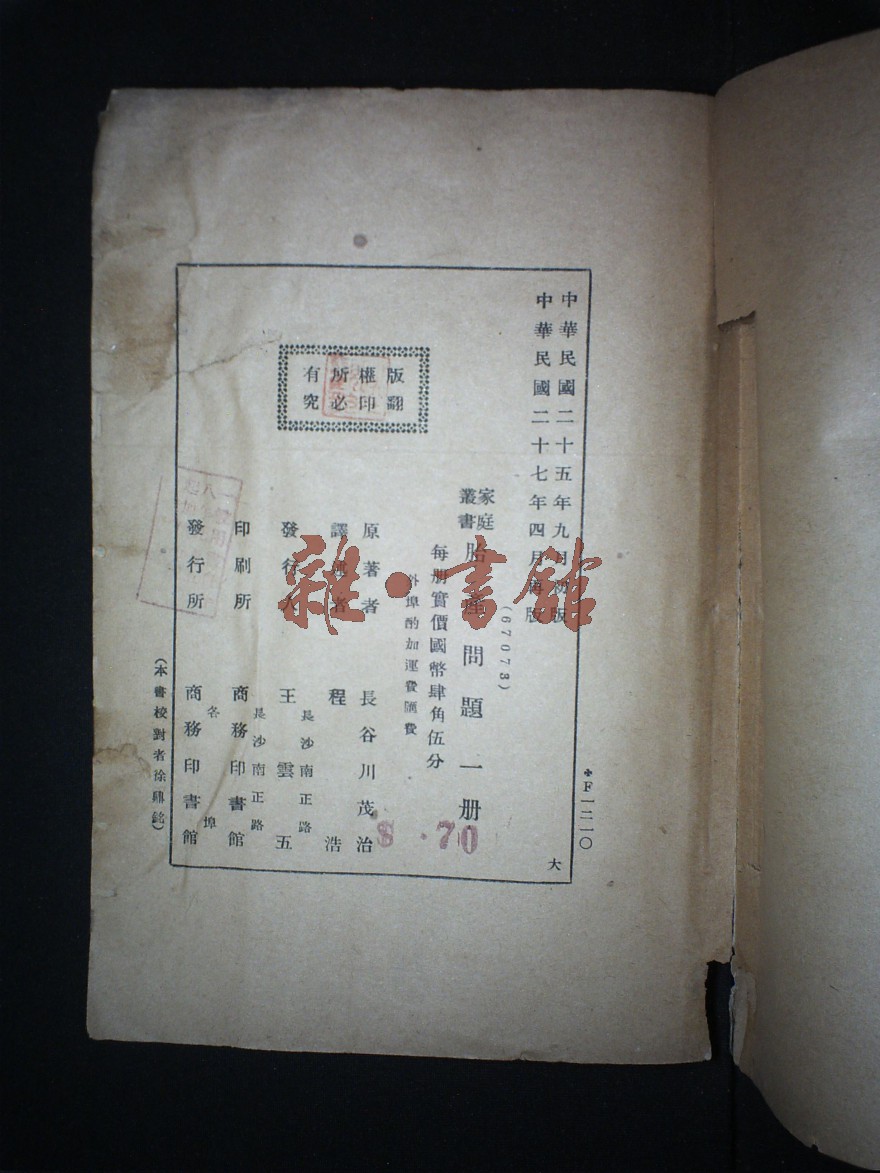 中華民國二十五年九月初版
中華民國二十七年四月再版
(67073)
家庭叢書 胎產問題 一册
每册實價國幣肆角伍分
外埠酌加運費匯費
原著者 長谷川茂治
譯述者 程浩
長沙南正路
發行人 王雲五
長沙南正路
印刷所 商務印書館
各埠
發行所 商務印書館
版權所有
翻印必究
(本書校對者徐鼎銘)
✤F一二一〇
大
$ .70
雜·書館